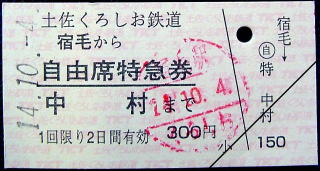 土佐くろしお鉄道
宿毛から
自由席特急券
中　村まで
1回限り2日間有効　300円
小
14.10.-4
14.10.4.
宿毛→
自
特
中村
150